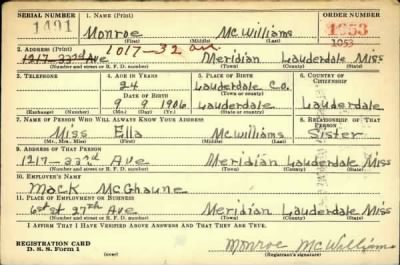 SERIAL NUMBER 1. NAME (Print) ORDER NUMBER
1491 Monroe McWilliams 1053
(First) (Middle) (Last) 1053
2. ADDRESS (Print) 1017-32 av
1217-33rd Ave Meridian Lauderdale Miss
(Number and street or R. F. D. number) (Town) (County) (State)
3. TELEPHONE 4. AGE IN YEARS 5. PLACE OF BIRTH 6. COUNTRY OF CITIZENSHIP
24 Lauderdale Co.
DATE OF BIRTH (Town or county)
9 9 1906 Lauderdale Lauderdale
(Exchange) (Number) (Mo.) (Day) (Yr.) (State or country)
7. NAME OF PERSON WHO WILL ALWAYS KNOW YOUR ADDRESS 8. RELATIONSHIP OF THAT PERSON
Miss Ella McWilliams Sister
(Mr., Mrs., Miss) (First) (Middle) (Last)
9. ADDRESS OF THAT PERSON
1217-33rd Ave Meridian Lauderdale Miss
(Number and street or R. F. D. number) (Town) (County) (State)
10. EMPLOYER'S NAME
Mack McGhaune
11. PLACE OF EMPLOYMENT OR BUSINESS
6th st 27th Ave Meridian Lauderdale Miss
(Number and street or R. F. D. number) (Town) (County) (State)
I AFFIRM THAT I HAVE VERIFIED ABOVE ANSWERS AND THAT THEY ARE TRUE.
REGISTRATION CARD
D. S. S. Form 1 Monroe McWilliams
(Registrant's signature)